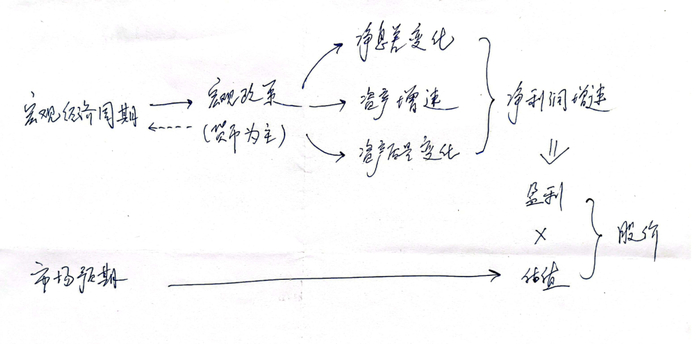 净息差变化
宏观经济周期 宏观政策 资产增速 净利润增速
(货币为主)
资产质量变化
盈利
×
股价
市场预期 估值